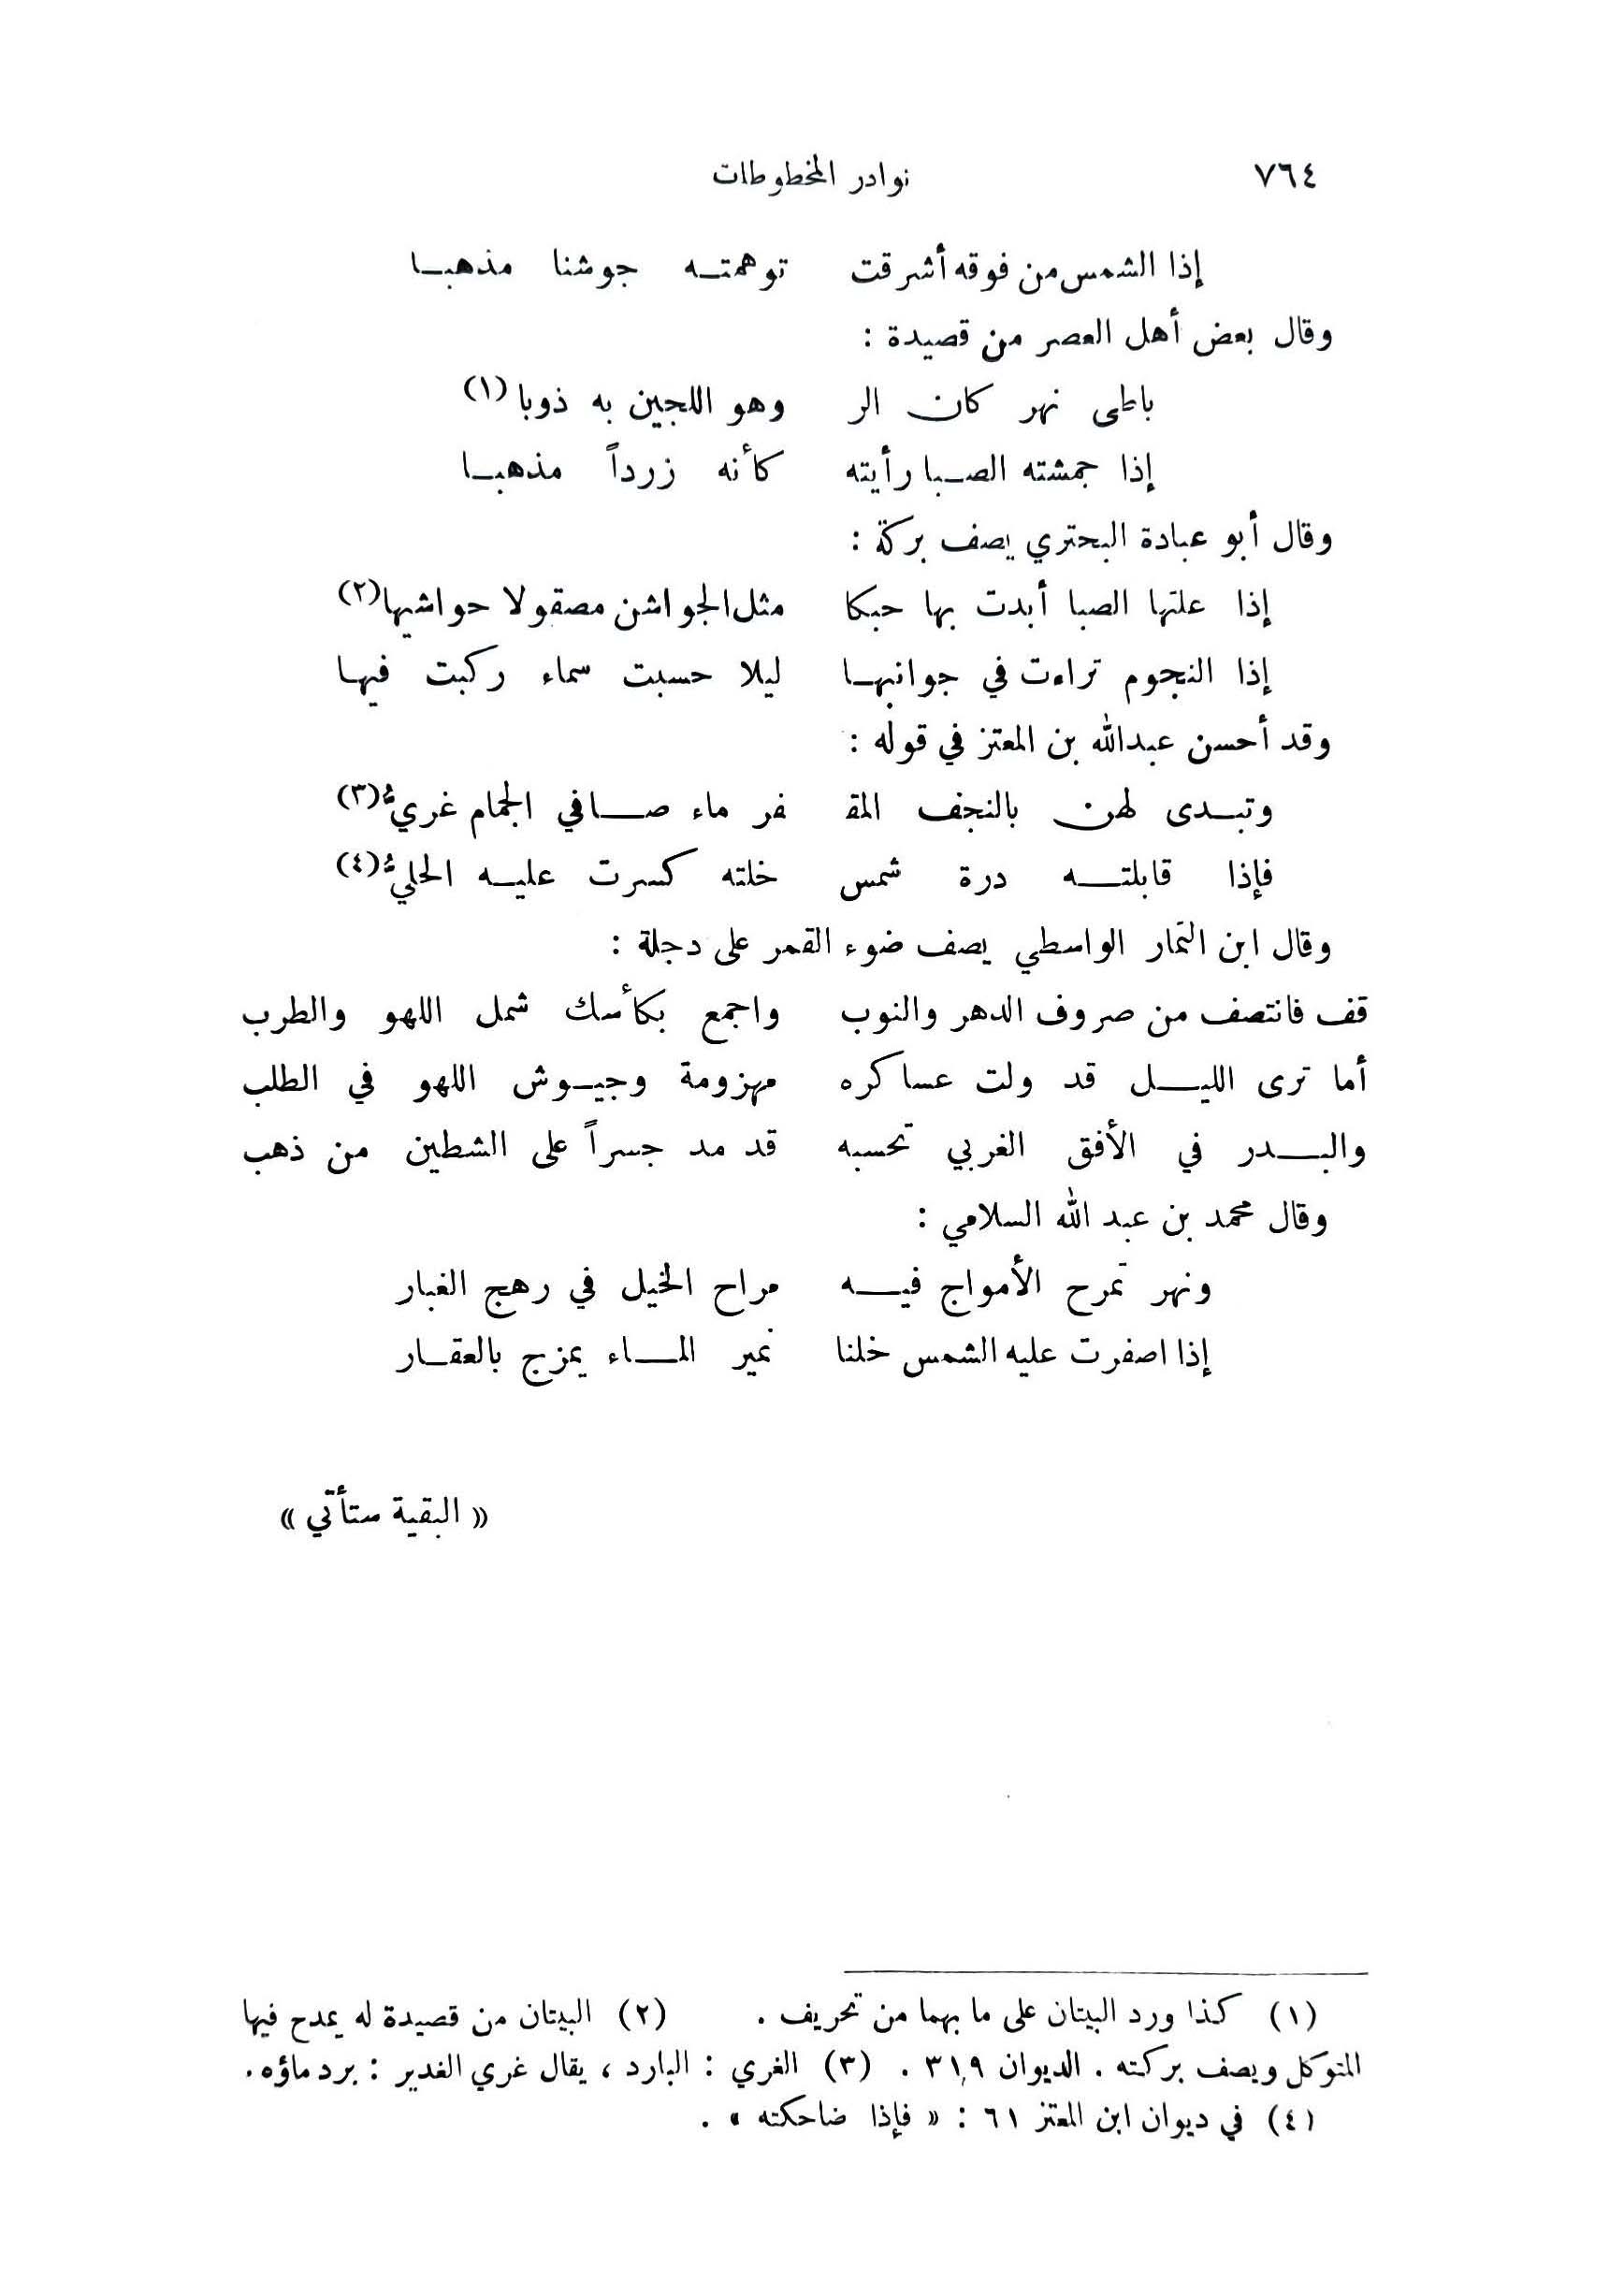 ٧٦٤ نوادر المخطوطات
إذا الشمس من فوقه أشرقت توهمته جوشنا مذهبا
وقال بعض أهل العصر من قصيدة :
باطى نهر كان الر وهو اللجين به ذوبا (١)
إذا جمشته الصبا رأيته كأنه زرداً مذهبا
وقال أبو عبادة البحتري يصف بركة :
إذا علتها الصبا أبدت بها حبكا مثل الجواشن مصقولا حواشيها (٢)
إذا النجوم تراءت في جوانبها ليلا حسبت سماء ركبت فيها
وقد أحسن عبدالله بن المعتز في قوله :
وتبدى لهن بالنجف المق فر ماء صافي الجمام غريُّ (٣)
فإذا قابلته درة شمس خلته كسرت عليه الحليُّ (٤)
وقال ابن التمار الواسطي يصف ضوء القمر على دجلة :
قف فانتصف من صروف الدهر والنوب واجمع بكأسك شمل اللهو والطرب
أما ترى الليل قد ولت عساكره مهزومة وجيوش اللهو في الطلب
والبدر في الأفق الغربي تحسبه قد مد جسراً على الشطين من ذهب
وقال محمد بن عبد الله السلامي :
ونهر تمرح الأمواج فيه مراح الخيل في رهج الغبار
إذا اصفرت عليه الشمس خلنا نمير الماء يمزج بالعقار
« البقية ستأتي »
(١) كذا ورد البيتان على ما بهما من تحريف . (٢) البيتان من قصيدة له يمدح فيها
المتوكل ويصف بركته . الديوان ٣١٩ . (٣) الغري : البارد ، يقال غري الغدير : برد ماؤه .
(٤) في ديوان ابن المعتز ٦١ : « فإذا ضاحكته » .